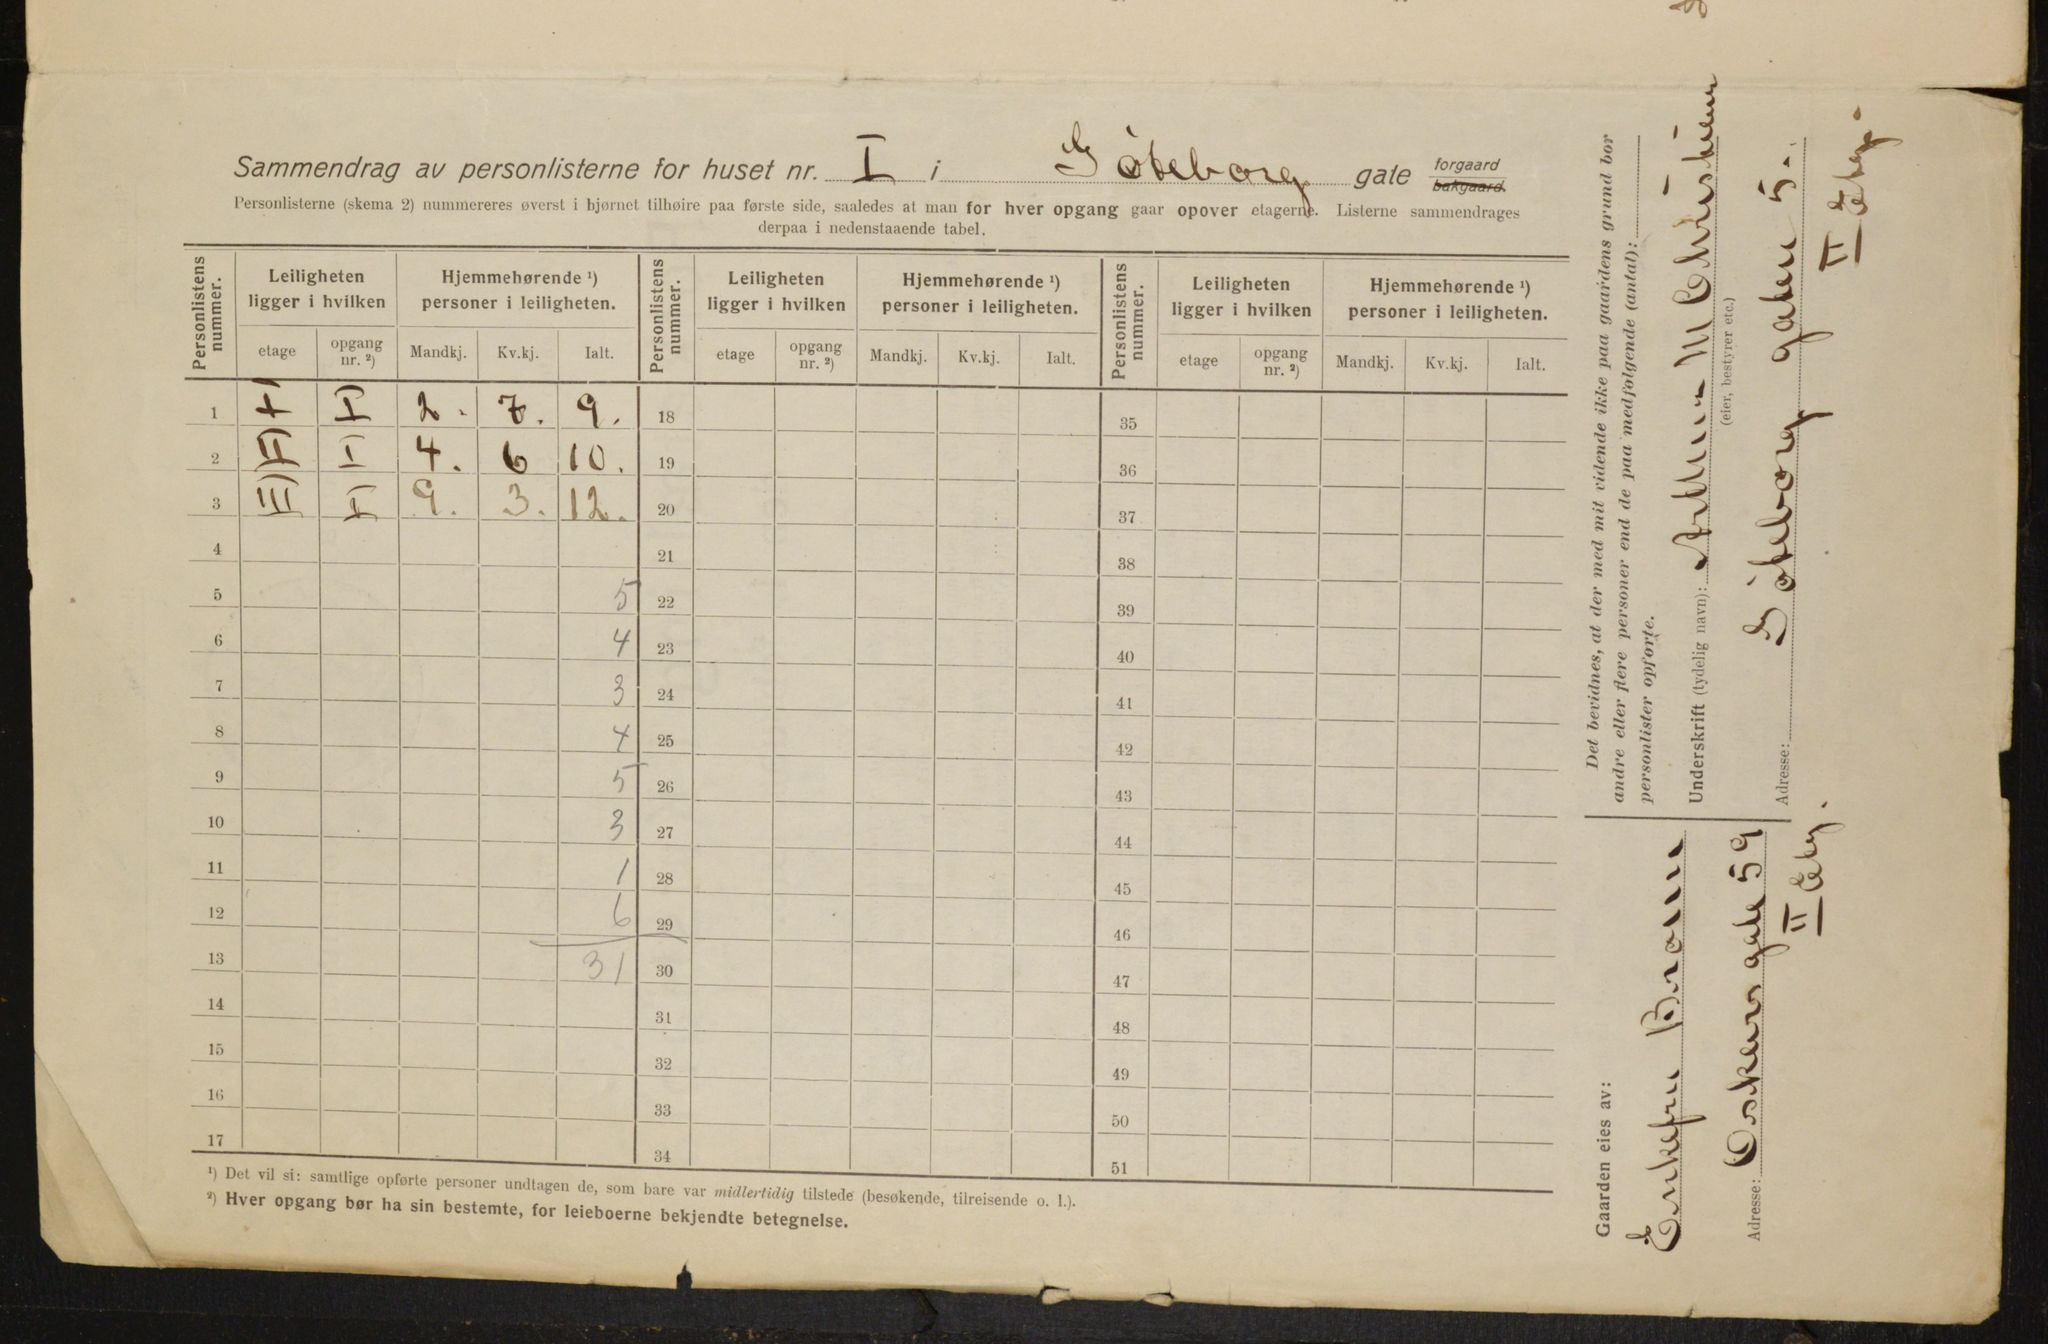 Sammendrag av personlisterne for huset nr. I i Göteborg gate forgaard bakgaard.
Personlisterne (skema 2) nummereres øverst i hjørnet tilhøire paa første side, saaledes at man for hver opgang gaar opover etagerne. Listerne sammendrages
derpaa i nedenstaaende tabel.
Personlistens nummer. Leiligheten ligger i hvilken Hjemmehørende ¹) personer i leiligheten. Personlistens nummer. Leiligheten ligger i hvilken Hjemmehørende ¹) personer i leiligheten. Personlistens nummer. Leiligheten ligger i hvilken Hjemmehørende ¹) personer i leiligheten.
etage opgang nr. ²) Mandkj. Kv.kj. Ialt. etage opgang nr. ²) Mandkj. Kv.kj. Ialt. etage opgang nr. ²) Mandkj. Kv.kj. Ialt.
1 I) I) 2. 7. 9. 18 35
2 II) I) 4. 6 10. 19 36
3 III) I) 9. 3. 12. 20 37
4 21 38
5 5 22 39
6 4 23 40
7 3 24 41
8 4 25 42
9 5 26 43
10 3 27 44
11 1 28 45
12 6 29 46
13 31 30 47
14 31 48
15 32 49
16 33 50
17 34 51
¹) Det vil si: samtlige opførte personer undtagen de, som bare var midlertidig tilstede (besøkende, tilreisende o. l.).
²) Hver opgang bør ha sin bestemte, for leieboerne bekjendte betegnelse.
Det bevidnes, at der med mit vidende ikke paa gaardens grund bor
andre eller flere personer end de paa medfølgende (antal):
personlister opførte.
Underskrift (tydelig navn): M Christiansen
(eier, bestyrer etc.)
Adresse: Göteborg gaten 5.
II Etg.
Gaarden eies av:
Enkefru Bronn
Adresse: Oskars gate 59
II Etg.